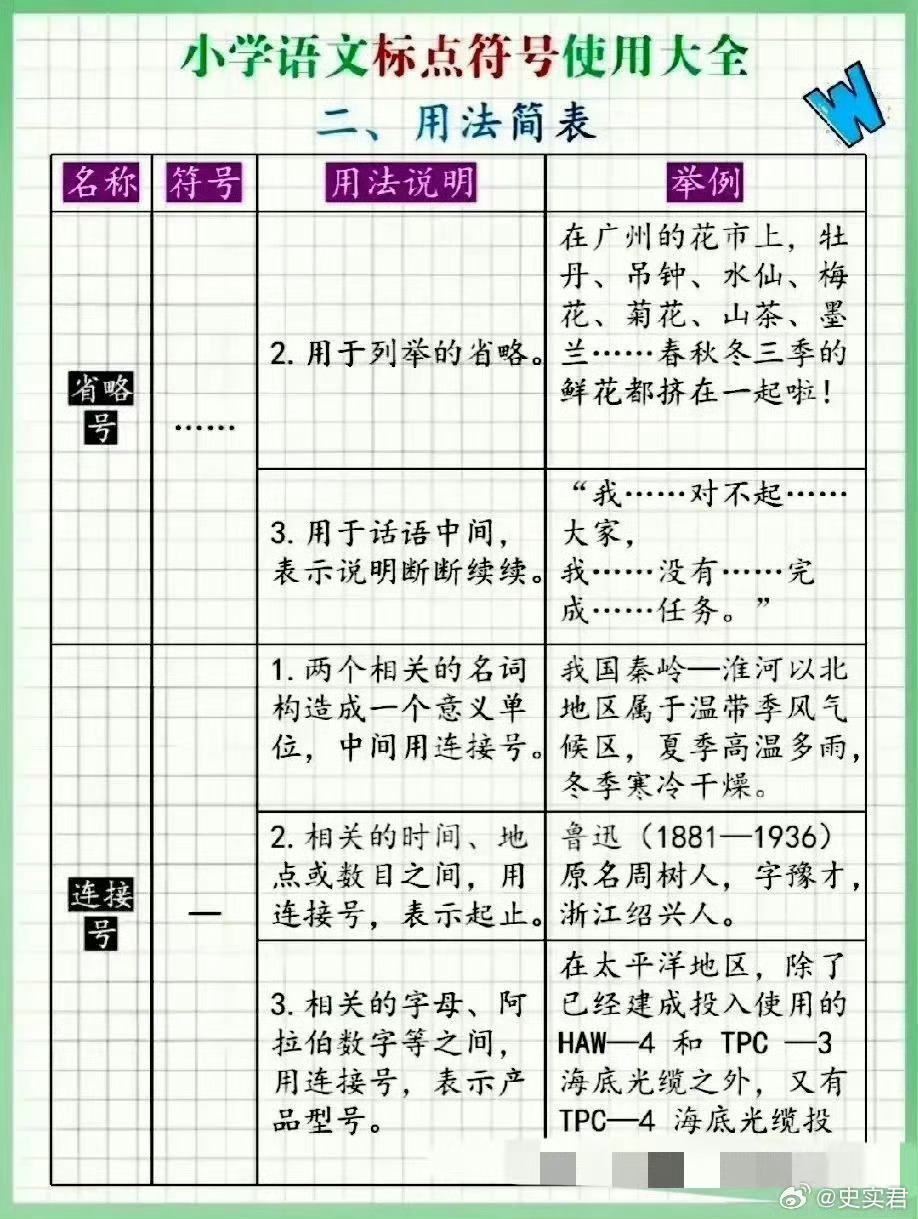 小学语文标点符号使用大全
W
二、用法简表
名称
符号
用法说明
举例
省略
号
……
2. 用于列举的省略。
在广州的花市上，牡
丹、吊钟、水仙、梅
花、菊花、山茶、墨
兰……春秋冬三季的
鲜花都挤在一起啦！
3. 用于话语中间，
表示说明断断续续。
“我……对不起……
大家，
我……没有……完
成……任务。”
连接
号
—
1. 两个相关的名词
构造成一个意义单
位，中间用连接号。
我国秦岭—淮河以北
地区属于温带季风气
候区，夏季高温多雨，
冬季寒冷干燥。
2. 相关的时间、地
点或数目之间，用
连接号，表示起止。
鲁迅（1881—1936）
原名周树人，字豫才，
浙江绍兴人。
3. 相关的字母、阿
拉伯数字等之间，
用连接号，表示产
品型号。
在太平洋地区，除了
已经建成投入使用的
HAW—4 和 TPC —3
海底光缆之外，又有
TPC—4 海底光缆投
@史实君